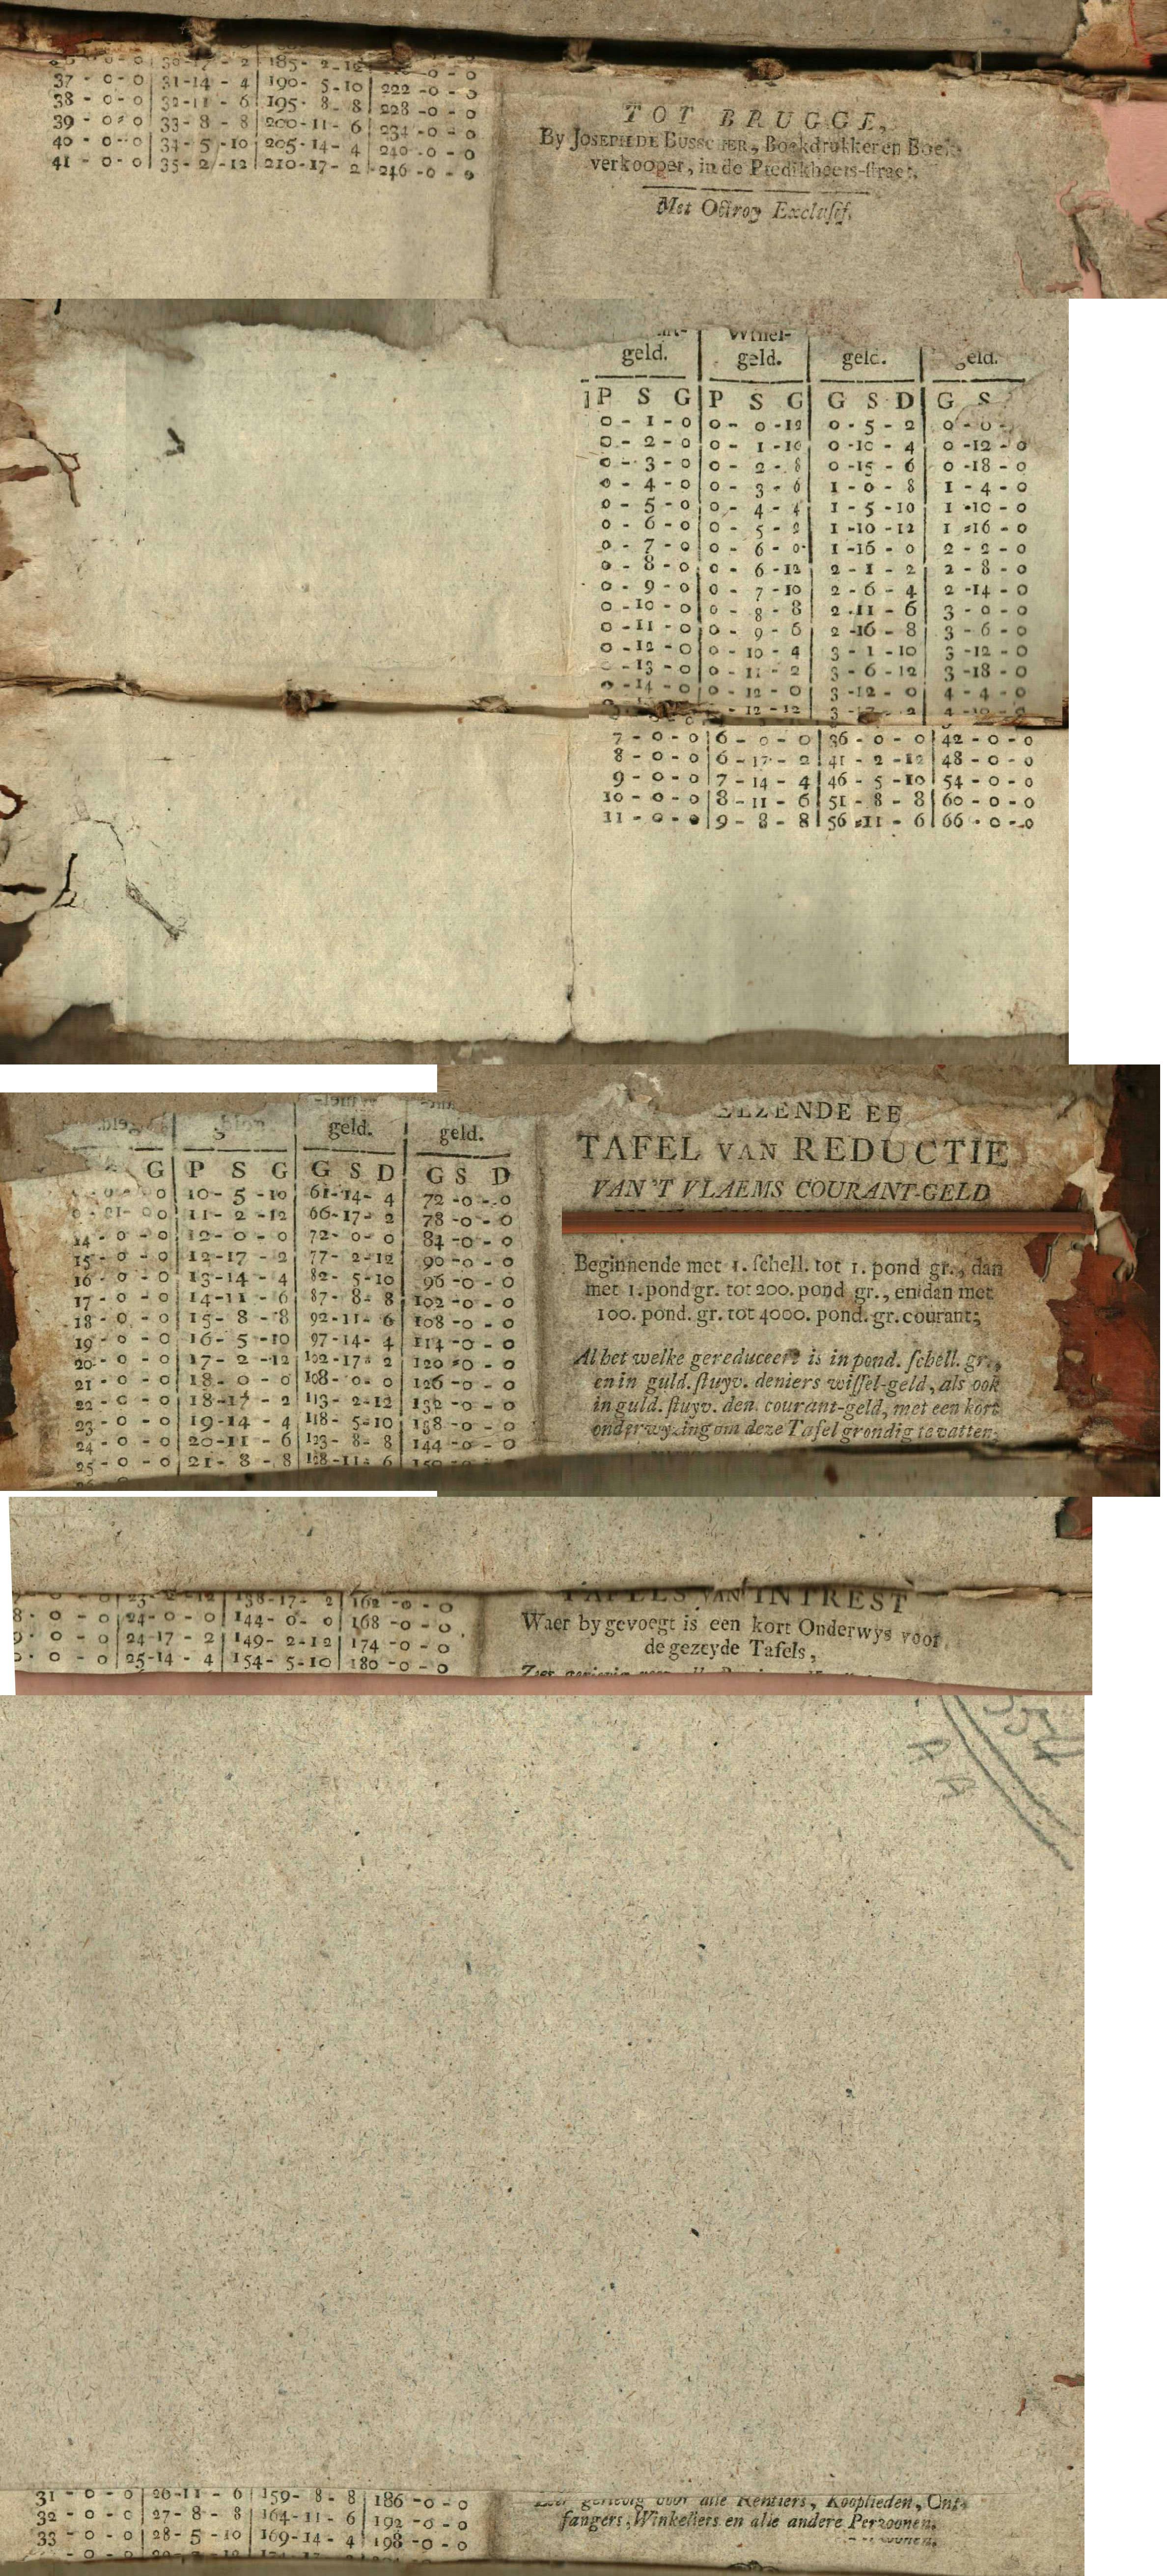 37 - 0 - 0 | 31-14 - 4 | 190- 5-10 | 222 -0 - 0
38 - 0 - 0 | 32-11 - 6 | 195- 8- 8 | 228 -0 - 0
39 - 0 - 0 | 33- 8 - 8 | 200-11- 6 | 234 -0 - 0
40 - 0 - 0 | 34- 5 -10 | 205-14- 4 | 240 -0 - 0
41 - 0 - 0 | 35- 2 -12 | 210-17- 2 | 246 -0 - 0
TOT BRUGGE,
By JOSEPH DE BUSSCHER, Boekdrukker en
verkooper, in de Predikheers-straet.
Met Octroy Exclusif.
geld. | geld. | geld. | geld.
P S G | P S G | G S D | G S
0 - 1 - 0 | 0 - 0 -12 | 0 - 5 - 2 | 0 -
0 - 2 - 0 | 0 - 1 -10 | 0 -10 - 4 | 0 -12 - 0
0 - 3 - 0 | 0 - 2 - 8 | 0 -15 - 6 | 0 -18 - 0
0 - 4 - 0 | 0 - 3 - 6 | 1 - 0 - 8 | 1 - 4 - 0
0 - 5 - 0 | 0 - 4 - 4 | 1 - 5 -10 | 1 -10 - 0
0 - 6 - 0 | 0 - 5 - 2 | 1 -10 -12 | 1 -16 - 0
0 - 7 - 0 | 0 - 6 - 0 | 1 -16 - 0 | 2 - 2 - 0
0 - 8 - 0 | 0 - 6 -12 | 2 - 1 - 2 | 2 - 8 - 0
0 - 9 - 0 | 0 - 7 -10 | 2 - 6 - 4 | 2 -14 - 0
0 -10 - 0 | 0 - 8 - 8 | 2 -11 - 6 | 3 - 0 - 0
0 -11 - 0 | 0 - 9 - 6 | 2 -16 - 8 | 3 - 6 - 0
0 -12 - 0 | 0 - 10 - 4 | 3 - 1 -10 | 3 -12 - 0
-13 - 0 | 0 - 11 - 2 | 3 - 6 -12 | 3 -18 - 0
0 -14 - 0 | 0 - 12 - 0 | 3 -12 - 0 | 4 - 4 - 0
7 - 0 - 0 | 6 - 0 - 0 | 36 - 0 - 0 | 42 - 0 - 0
8 - 0 - 0 | 6 - 17 - 2 | 41 - 2 -12 | 48 - 0 - 0
9 - 0 - 0 | 7 - 14 - 4 | 46 - 5 -10 | 54 - 0 - 0
10 - 0 - 0 | 8 - 11 - 6 | 51 - 8 - 8 | 60 - 0 - 0
11 - 0 - 0 | 9 - 8 - 8 | 56 -11 - 6 | 66 - 0 - 0
geld. | geld.
G | P S G | G S D | G S D
0 | 10- 5 -10 | 61-14- 4 | 72 -0 - 0
0 | 11- 2 -12 | 66-17- 2 | 78 -0 - 0
14 - 0 - 0 | 12- 0 - 0 | 72- 0- 0 | 84 -0 - 0
15 - 0 - 0 | 12-17 - 2 | 77- 2-12 | 90 -0 - 0
16 - 0 - 0 | 13-14 - 4 | 82- 5-10 | 96 -0 - 0
17 - 0 - 0 | 14-11 - 6 | 87- 8- 8 | 102 -0 - 0
18 - 0 - 0 | 15- 8 - 8 | 92-11- 6 | 108 -0 - 0
19 - 0 - 0 | 16- 5 -10 | 97-14- 4 | 114 -0 - 0
20 - 0 - 0 | 17- 2 -12 | 102-17- 2 | 120 -0 - 0
21 - 0 - 0 | 18- 0 - 0 | 108- 0- 0 | 126 -0 - 0
22 - 0 - 0 | 18-17 - 2 | 113- 2-12 | 132 -0 - 0
23 - 0 - 0 | 19-14 - 4 | 118- 5-10 | 138 -0 - 0
24 - 0 - 0 | 20-11 - 6 | 123- 8- 8 | 144 -0 - 0
25 - 0 - 0 | 21- 8 - 8 | 128-11- 6
TAFEL VAN REDUCTIE
VAN 'T VLAEMS COURANT-GELD
Beginnende met 1. schell. tot 1. pond gr., dan
met 1. pond gr. tot 200. pond gr., en dan met
100. pond. gr. tot 4000. pond. gr. courant;
Al het welke gereduceert is in pond. schell. gr.,
en in guld. stuyv. deniers wissel-geld, als ook
in guld. stuyv. den. courant-geld, met een kort
onderwyzing om deze Tafel grondig te vatten.
138-17- 2 | 162 -0 - 0
8 - 0 - 0 | 24- 0 - 0 | 144- 0- 0 | 168 -0 - 0
0 - 0 | 24-17 - 2 | 149- 2-12 | 174 -0 - 0
0 - 0 | 25-14 - 4 | 154- 5-10 | 180 -0 - 0
TAFELS VAN INTREST
Waer by gevoegt is een kort Onderwys voor
de gezeyde Tafels,
31 - 0 - 0 | 26-11 - 6 | 159- 8- 8 | 186 -0 - 0
32 - 0 - 0 | 27- 8 - 8 | 164-11- 6 | 192 -0 - 0
33 - 0 - 0 | 28- 5 -10 | 169-14- 4 | 198 -0 - 0
gerievig voor alle Rentiers, Kooplieden, Ont-
fangers, Winkeliers en alle andere Perzoonen.